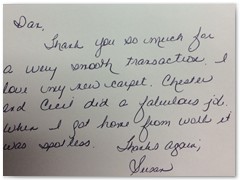 Dan,
Thank you so much for
a very smooth transaction. I
love my new carpet. Chester
and Cecil did a fabulous job.
When I got home from work it
was spotless. Thanks again,
Susan